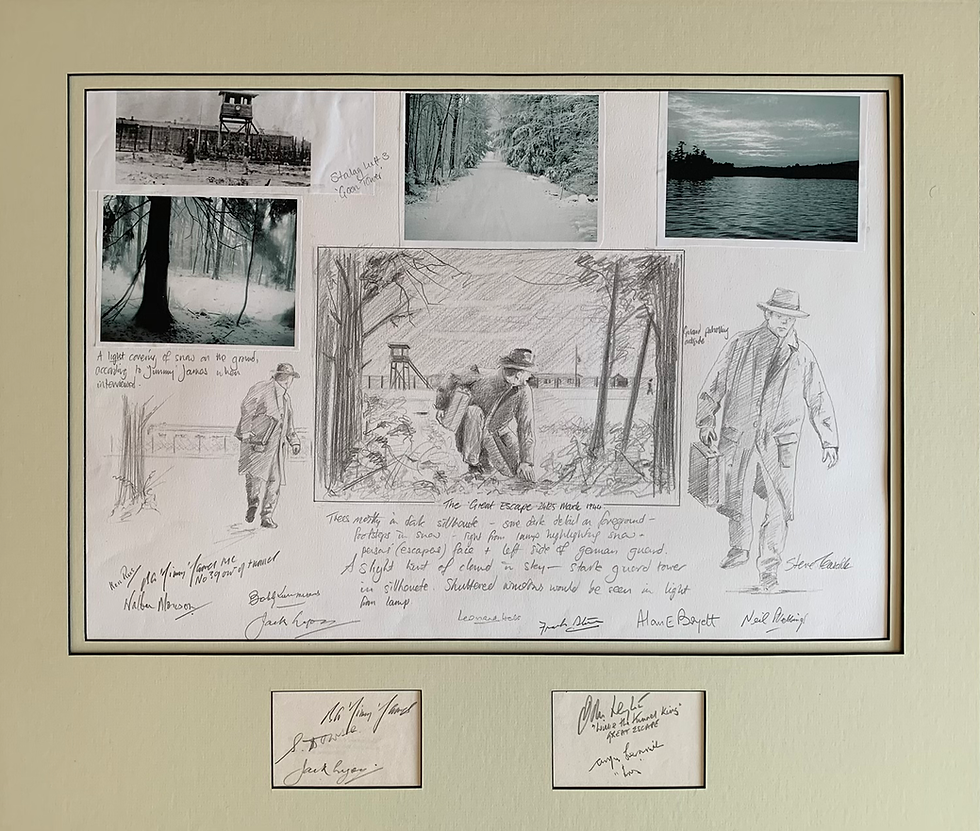 Stalag Luft 3
'Goon Tower'
A light covering of snow on the ground,
according to Jimmy James when
interviewed.
Guard patrolling
outside
The Great Escape March 1944
Trees mostly in dark silhouette - some dark detail on foreground -
footsteps in snow - light from lamp highlighting snow +
persons (escapers) face + left side of german guard.
A slight hint of cloud in sky - stark guard tower
in silhouette. Shuttered windows would be seen in light
from lamp
Steve Teasdale
Ken Rees
BA 'Jimmy' James MC
No 39 out of tunnel
Walter Morison
Jack Lyon
Frank Stone
Alan E Bryett
BA 'Jimmy' James
Jack Lyon
John Leyton
"Willie the Tunnel King"
GREAT ESCAPE
Angus Lennie
"Ives"